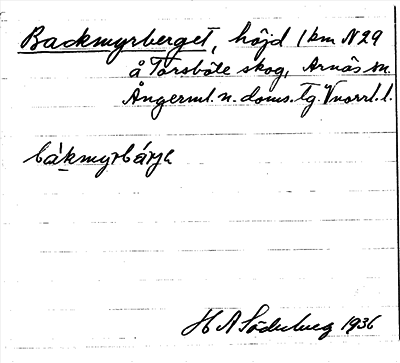 Backmyrberget, höjd 1 km N 29
å Torsböle skog, Arnäs sn.
Ångerml. n. doms. Tg. Vnorrl. l.
bàkmyrbárjə
H A Söderberg 1936